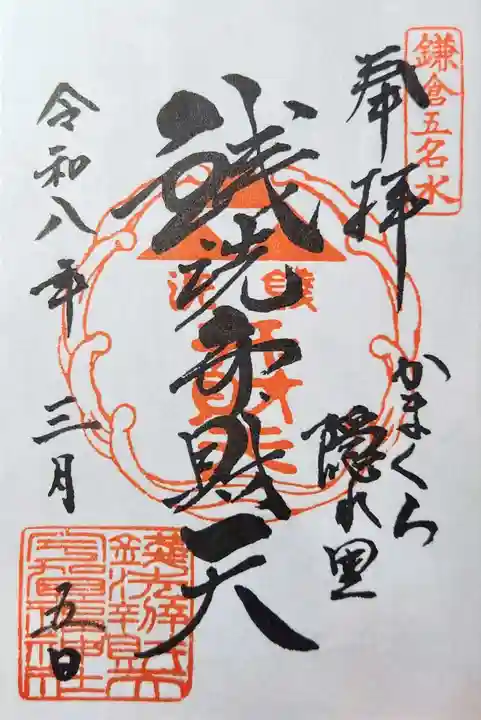 鎌倉五名水
奉拝
かまくら
隠れ里
銭洗弁財天
銭洗
令和八年三月五日
銭洗弁財天
宇賀福神社